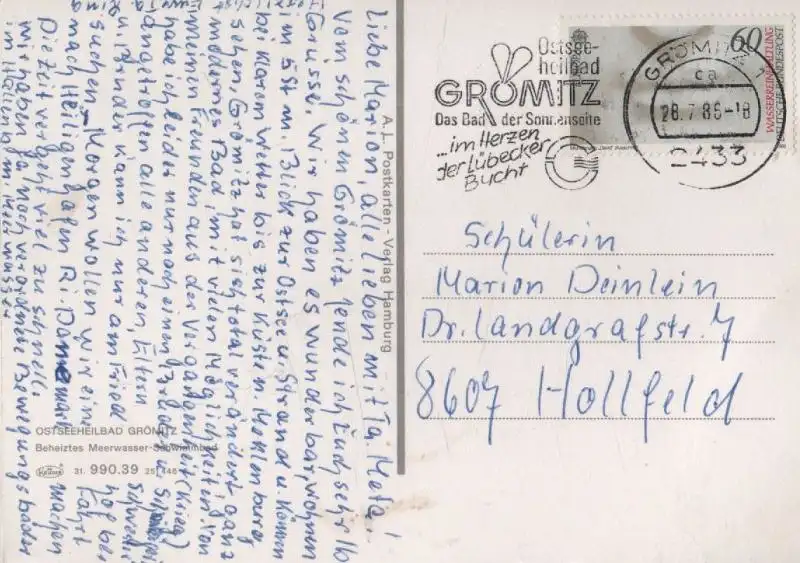 Liebe Marion, alle Lieben mit Ta. Meta!
Vom schönen Grömitz sende ich Euch sehr lb
Grüsse. Wir haben es wunderbar, wohnen
im 5 St m. Blick zur Ostsee u. Strand u. können
bei klarem Wetter bis zur Küste n. Mecklenburg
sehen. Grömitz hat sich total verändert, ganz
modernes Bad, mit vielen Möglichkeiten. Von
meinen Freunden aus der Vergangenheit (Krieg)
habe ich leider nur noch einen
angetroffen, alle anderen, Eltern
u. Kinder kann ich nur am Fried
hof be
suchen. Morgen wollen wir eine
Fahrt
nach Heiligenhafen Ri. Dänemark
machen
Die Zeit vergeht viel zu schnell.
wir haben ja noch verordnete Bewegungsbäder
im Meerwasser
Herzlichst
A. L. Postkarten - Verlag Hamburg
OSTSEEHEILBAD GRÖMITZ
Beheiztes Meerwasser-Schwimmbad
Krüger
31. 990.39 25 446
Ostsee-
heilbad
GRÖMITZ
Das Bad der Sonnenseite
...im Herzen
der Lübecker
Bucht
GRÖMITZ 1
ca
28.7.86-18
2433
60
WASSERREINHALTUNG
DEUTSCHE BUNDESPOST
Schülerin
Marion Deinlein
Dr. Landgrafstr. 7
8607 Hollfeld